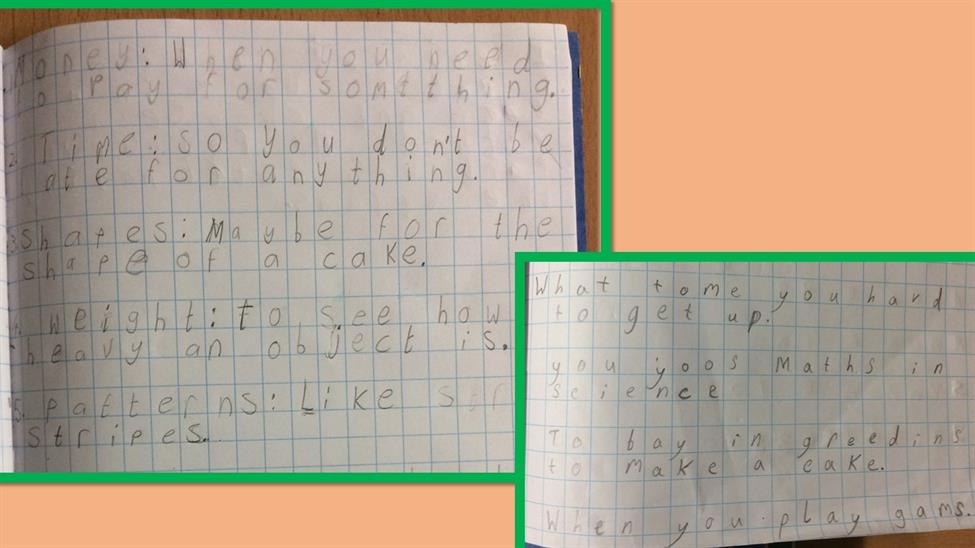 Money: When you need
to Pay for somtthing.
2. Time: so you don't be
late for anything.
3. Shapes: Maybe for the
shape of a cake.
4. weight: to see how
heavy an object is.
5. patterns: Like str
stripes.
What tome you hard
to get up.
you yoos Maths in
science
To bay in greedins
to make a cake.
When you play gams.